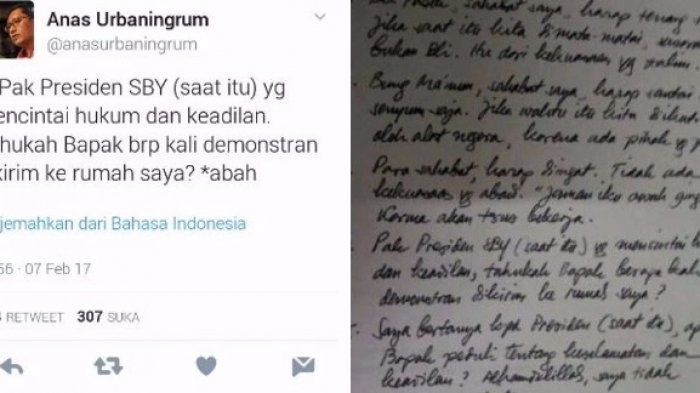 Anas Urbaningrum
@anasurbaningrum
Pak Presiden SBY (saat itu) yg
encintai hukum dan keadilan.
hukah Bapak brp kali demonstran
kirim ke rumah saya? *abah
jemahkan dari Bahasa Indonesia
56 · 07 Feb 17
RETWEET 307 SUKA
sahabat saya, harap tenang
Jika saat itu kita dimata-matai,
bukan Eli. Itu dari kekuasaan yg zalim.
sahabat saya, harap santai
senyum saja. Jika waktu itu kita
oleh alat negara, karena ada pihak yg
Para sahabat, harap diingat. Tidak ada
kekuasaan yg abadi. "Jaman iku owah
Karma akan terus bekerja.
Pak Presiden SBY (saat itu) yg mencintai
dan keadilan, tahukah Bapak berapa kali
demonstran dikirim ke rumah saya?
Saya bertanya kpd Presiden (saat itu),
Bapak peduli tentang keselamatan dan
keadilan? Alhamdulillah, saya tidak